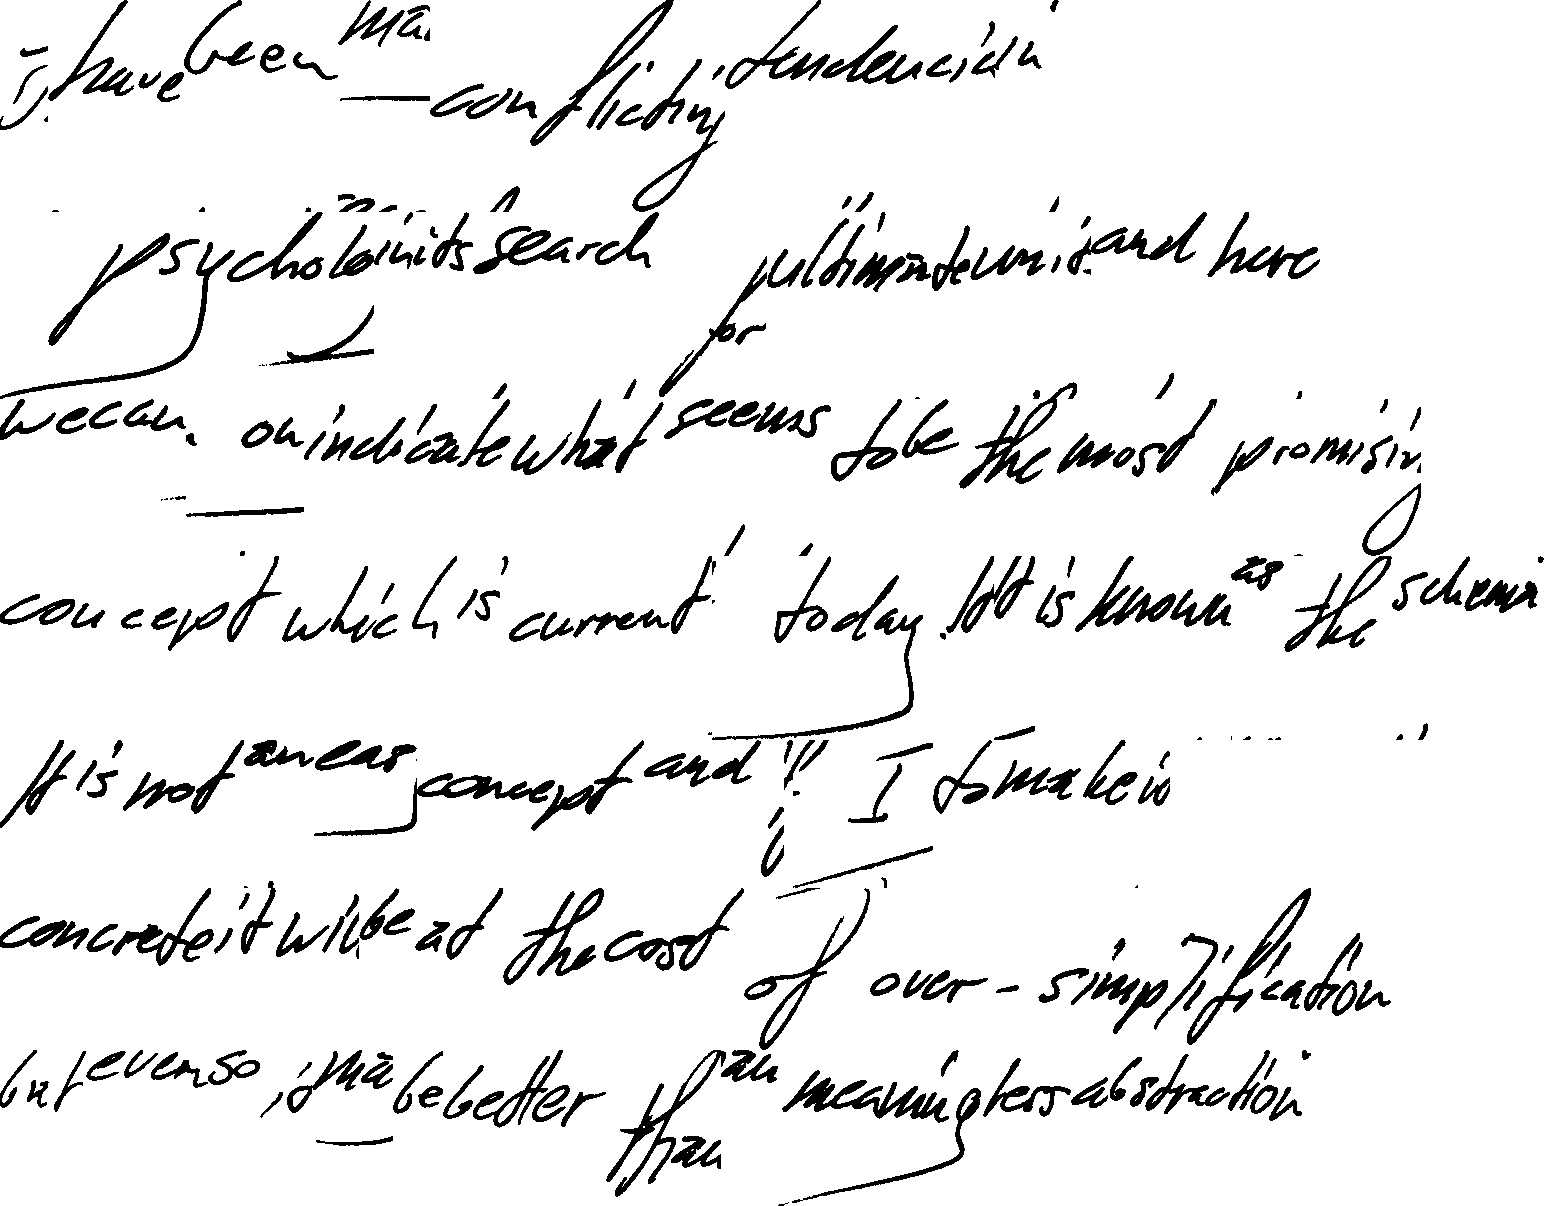 have been conflicting
psychologists search for ultimate unit and here
we can indicate what seems to be the most promising
concept which is current today. It is known as the schema
It is not an easy concept and if I to make it
concrete it will be at the cost of over-simplification
but even so, it may be better than an meaningless abstraction